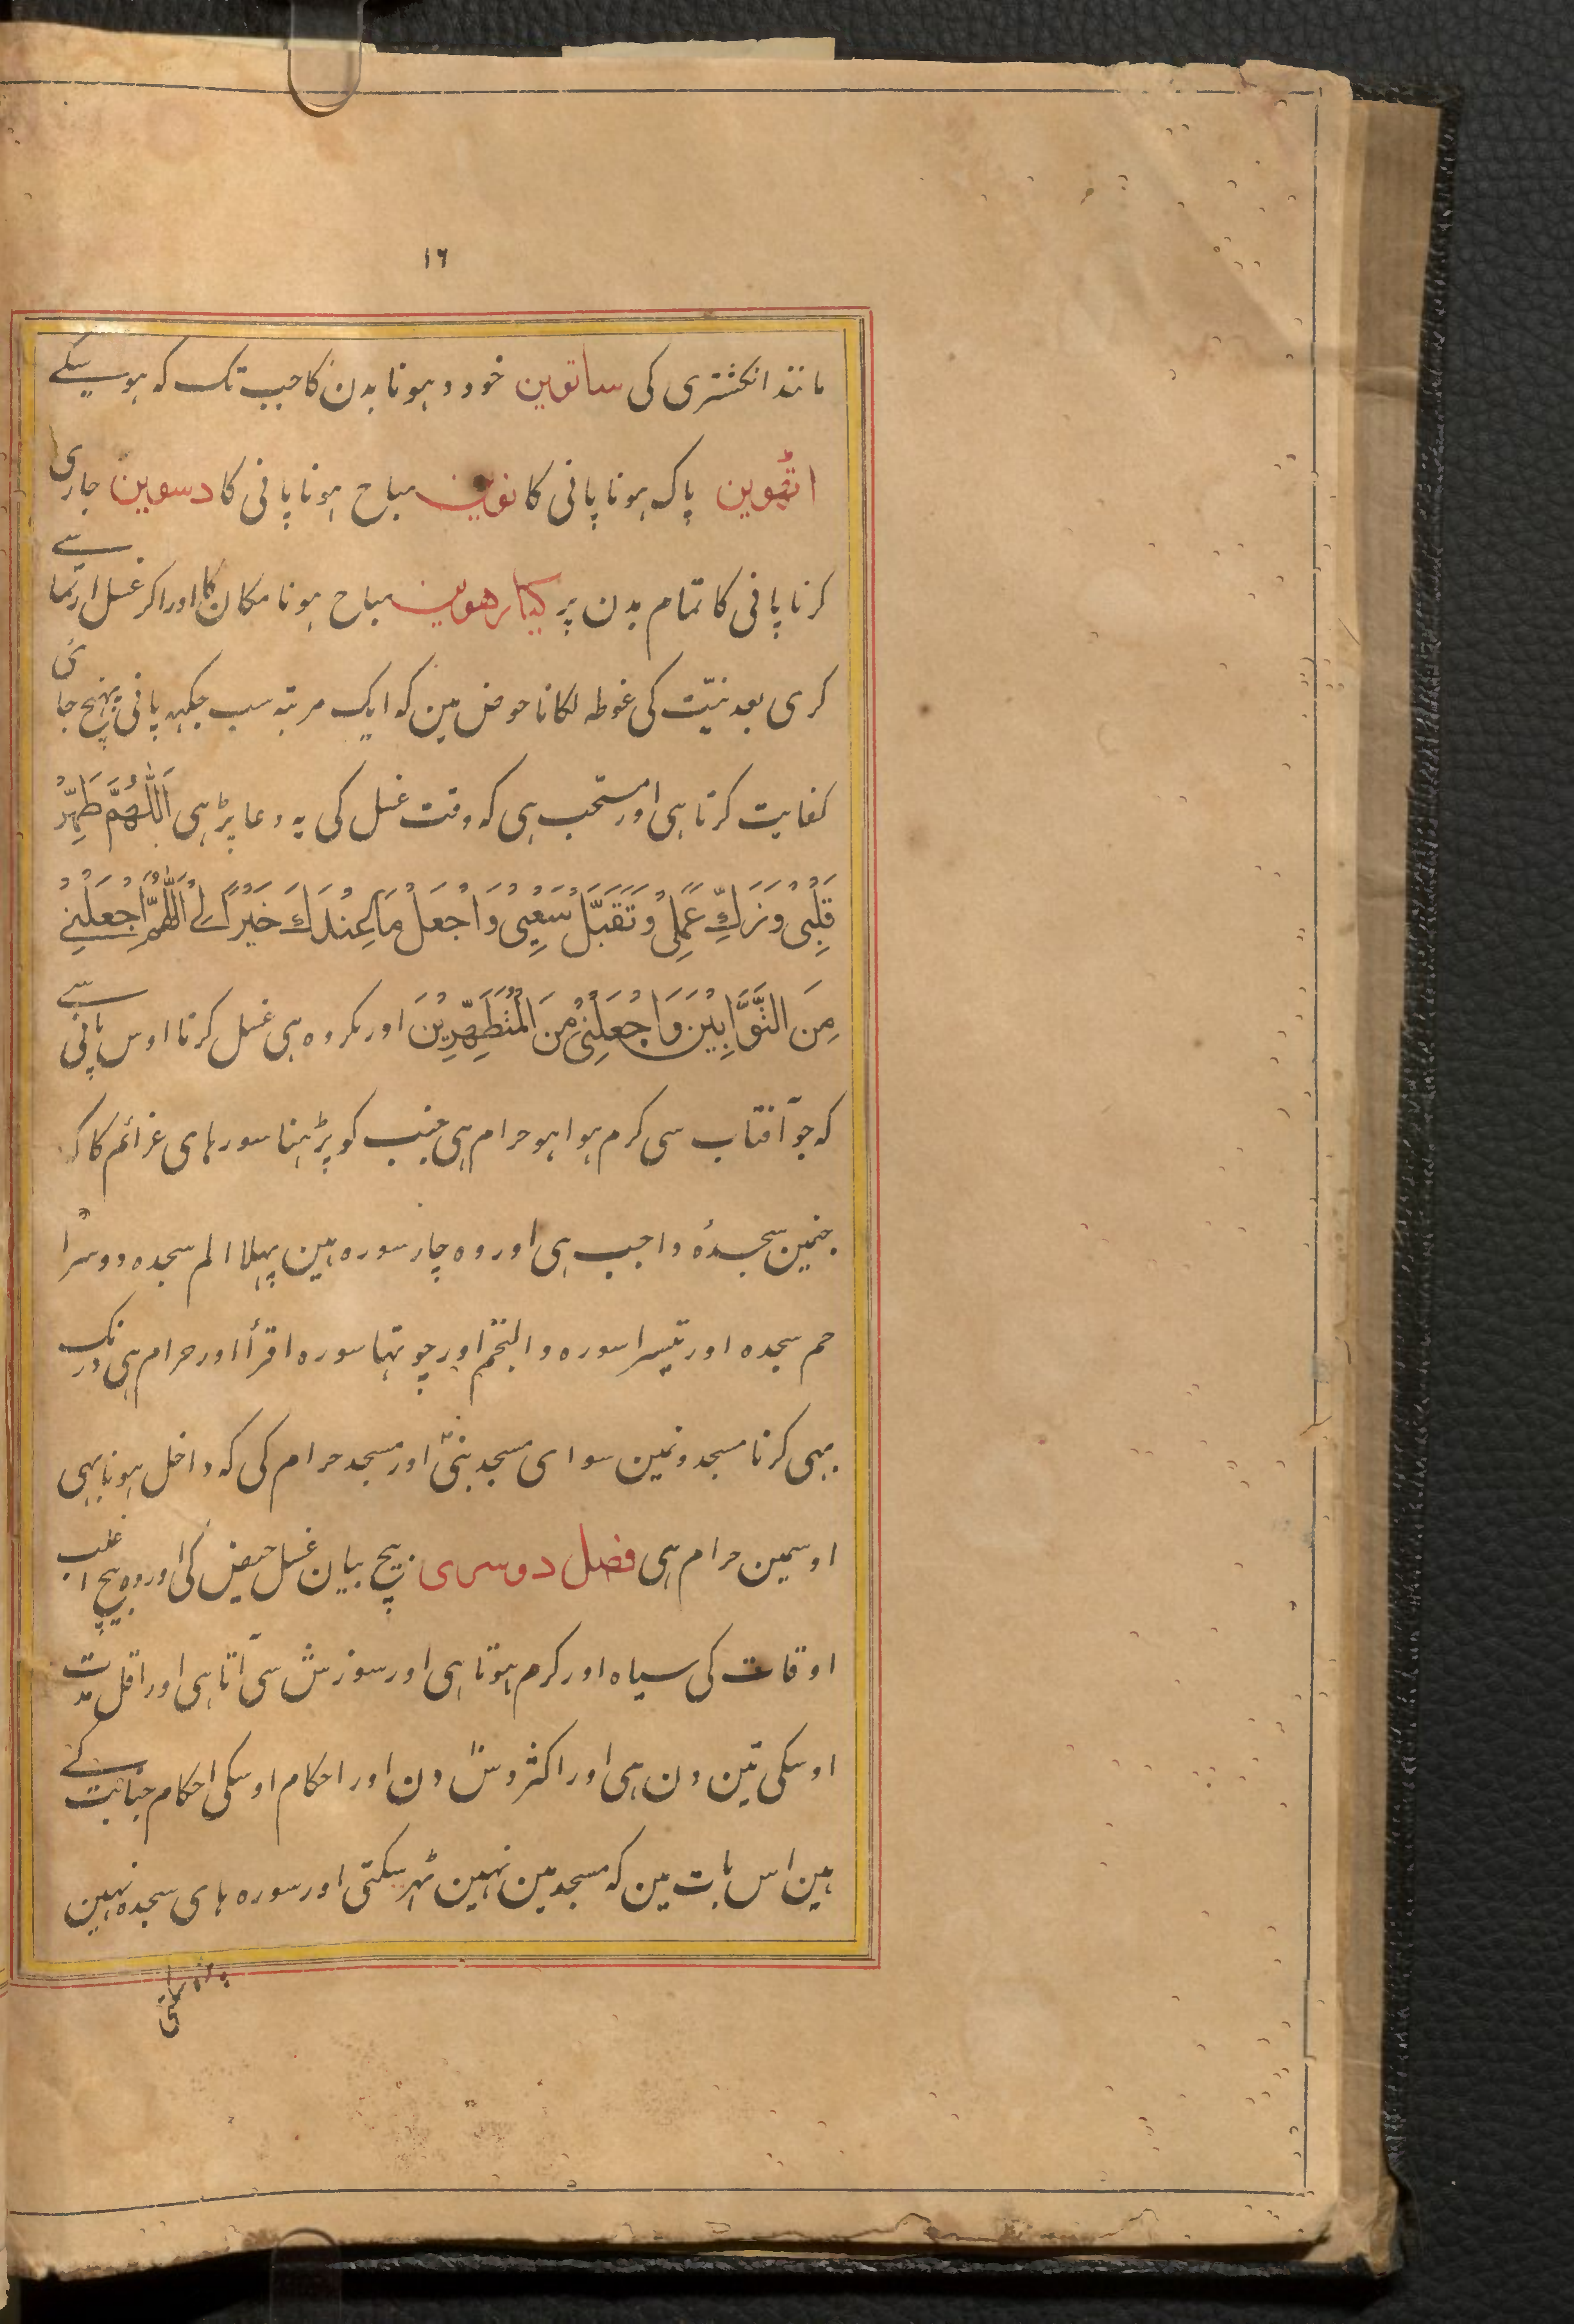 ١٦
مانند انکشتری کی ساتوین خود دہونا بدن کا جب تک کہ ہوسکے
اٹہوین پاک ہونا پانی کا نوین مباح ہونا پانی کا دسوین جاری
کرنا پانی کا تمام بدن پر کیارھوین مباح ہونا مکان کا اور اکر غسل ارتماسے
کری بعد نیّت کی غوطہ لکانا حوض مین کہ ایک مرتبہ سب جکہہ پانی پہنچ جائی
کفایت کرتا ہی اور مستحب ہی کہ وقت غسل کی یہ دعا پڑہی اَللّٰهُمَّ طَهِّرْ
قَلْبِیْ وَزَکِّ عَمَلِیْ وَتَقَبَّلْ سَعْیِیْ وَاجْعَلْ مَا عِنْدَكَ خَیْرًا لِیْ اَللّٰهُمَّ اجْعَلْنِیْ
مِنَ التَّوَّابِیْنَ وَاجْعَلْنِیْ مِنَ الْمُتَطَهِّرِیْنَ اور مکروہ ہی غسل کرنا اوس پانی سے
کہ جو آفتاب سی کرم ہوا ہو حرام ہی جنب کو پڑہنا سورہای عزائم کا کہ
جنمین سجدہٴ واجب ہی اور وہ چار سورہ ہین پہلا الم سجدہ دوسرا
حم سجدہ اور تیسرا سورہ والنجم اور چوتہا سورہ اقرأ اور حرام ہی درنک
بہی کرنا مسجدونمین سوای مسجد نبیؐ اور مسجد حرام کی کہ داخل ہونا بہی
اوسمین حرام ہی فصل دوسری بیچ بیان غسل حیض کی اور وہ بیچ اغلب
اوقات کی سیاہ اور کرم ہوتا ہی اور سوزش سی آتا ہی اور اقل مدت
اوسکی تین دن ہی اور اکثر دس دن اور احکام اوسکی احکام جنابت کے
ہین اس بات مین کہ مسجد مین نہین ٹہر سکتی اور سورہ ہای سجدہ نہین